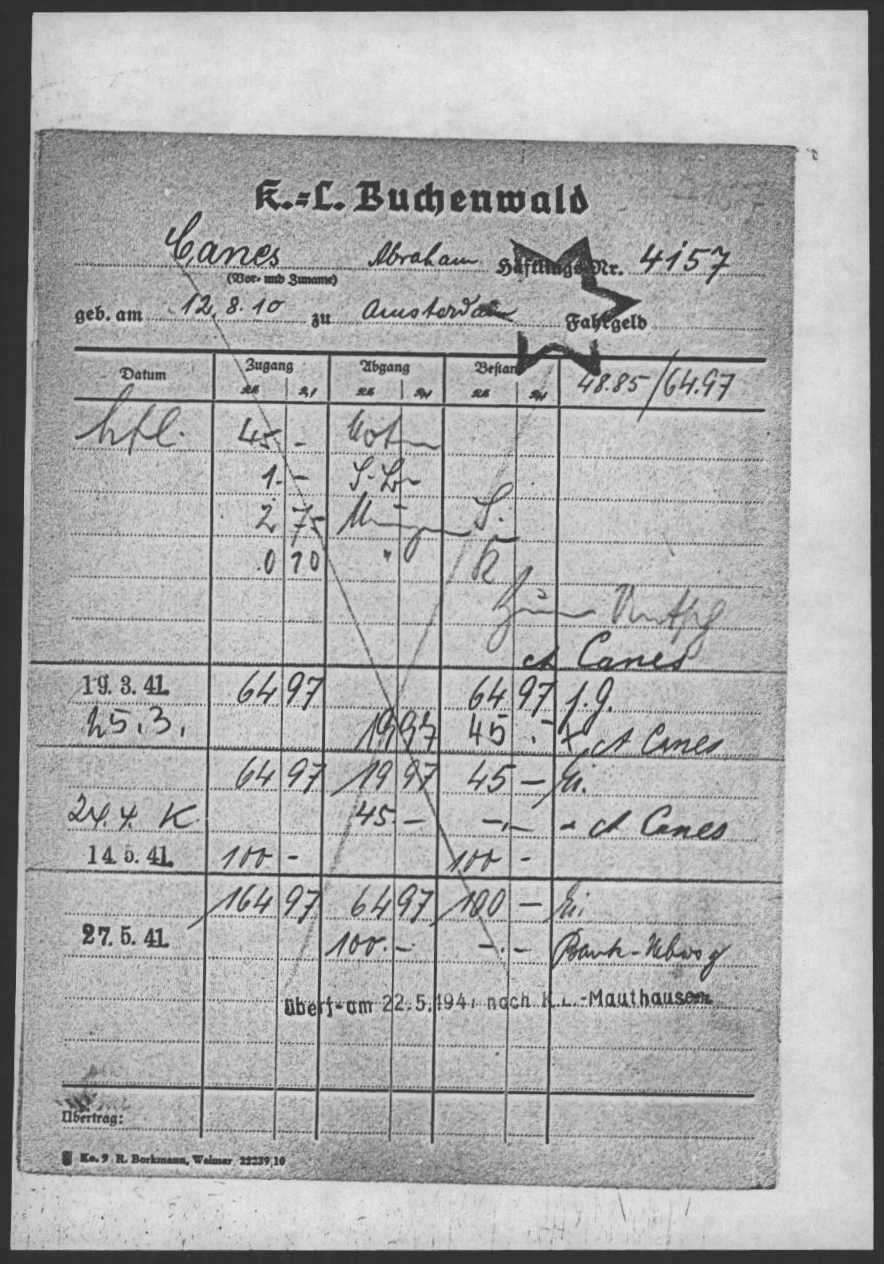 K.=L. Buchenwald
Canes Abraham Häftlings-Nr. 4157
(Vor- und Zuname)
geb. am 12.8.10 zu Amsterdam Fahrgeld
Datum Zugang Abgang Bestand 48.85/64.97
45 -
1. -
2 75 S.
0 10 " K
A Canes
19.3.41. 64 97 64 97
25.3. 19 97 45 - A Canes
64 97 19 97 45 -
24.4. K 45.- -.- - A Canes
14.5.41. 100 - 100 -
164 97 64 97 100 -
27.5.41. 100.- -.-
überf. am 22.5.1941 nach K.L.-Mauthausen
Übertrag:
Ko. 9 R. Borkmann, Weimar 22239 10